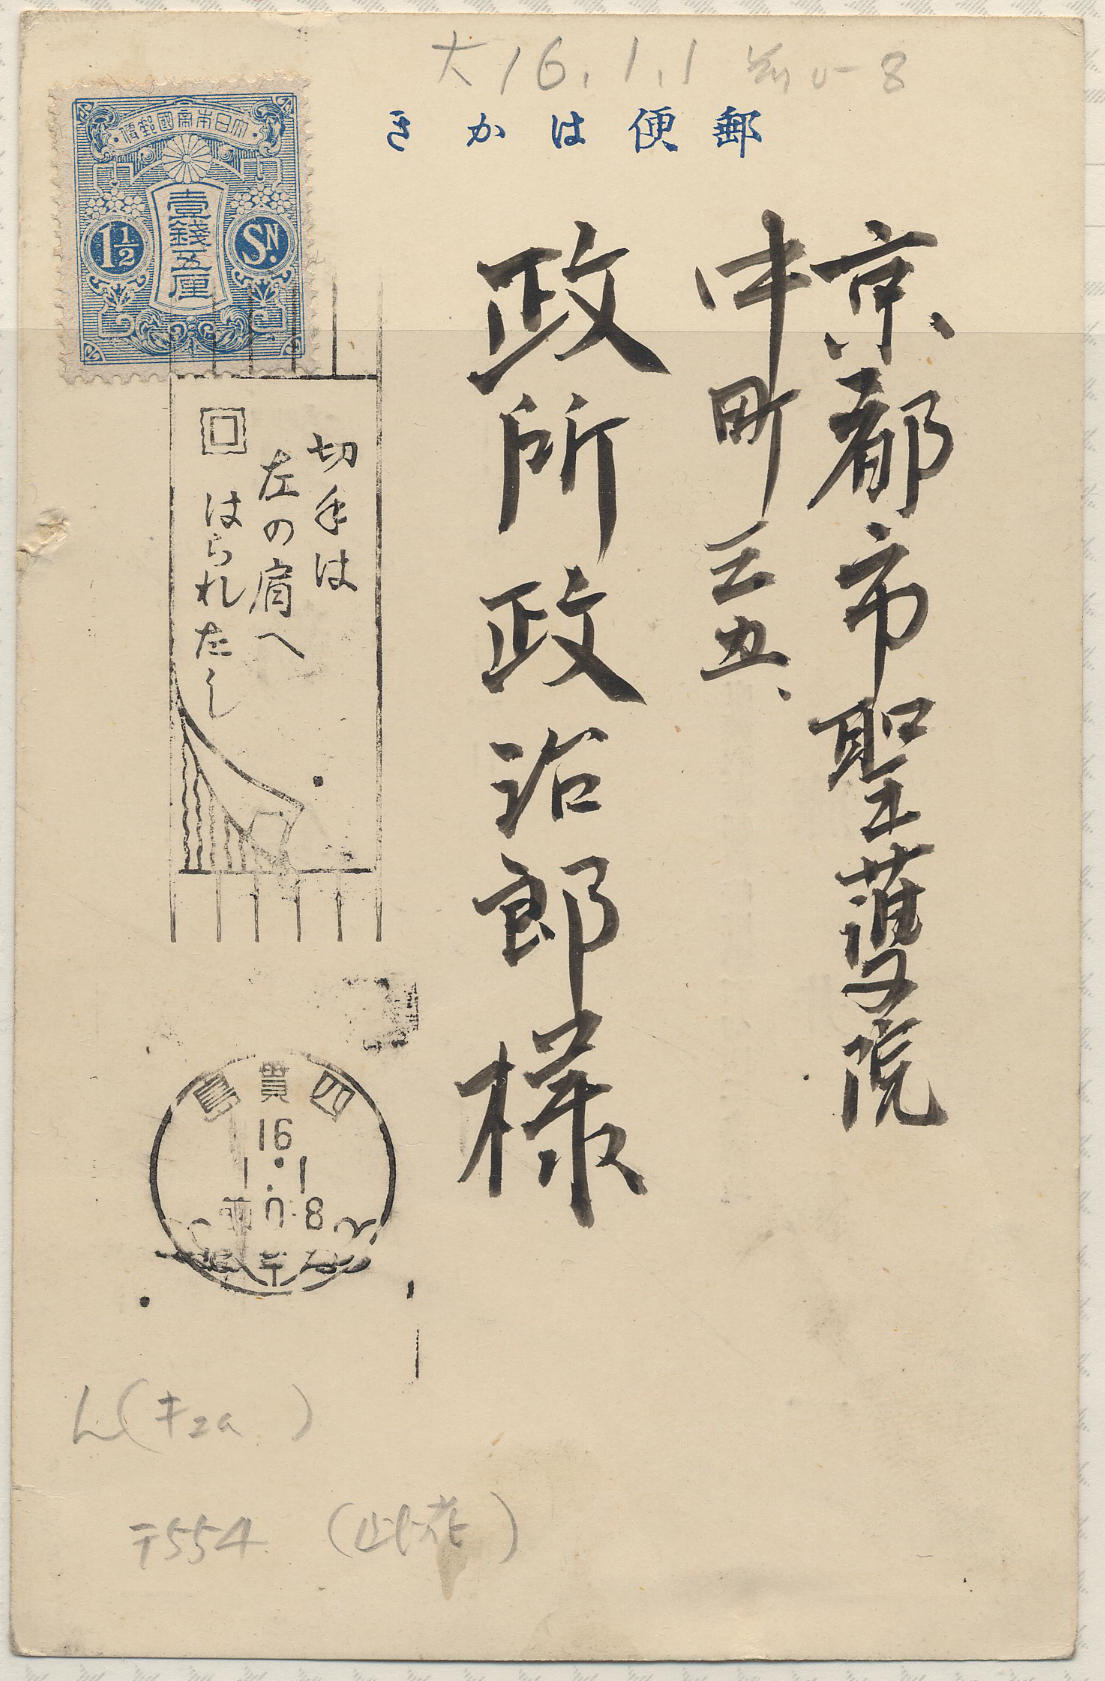 大16.1.1 前0-8
郵便はかき
大日本帝國郵便
壹錢五厘
1½
SN.
京都市聖護院
中町三五、
政所政治郎様
切手は
左の肩へ
はられたし
四貫島
16
1.1
前0-8
L(キ2a )
〒554 (此花)